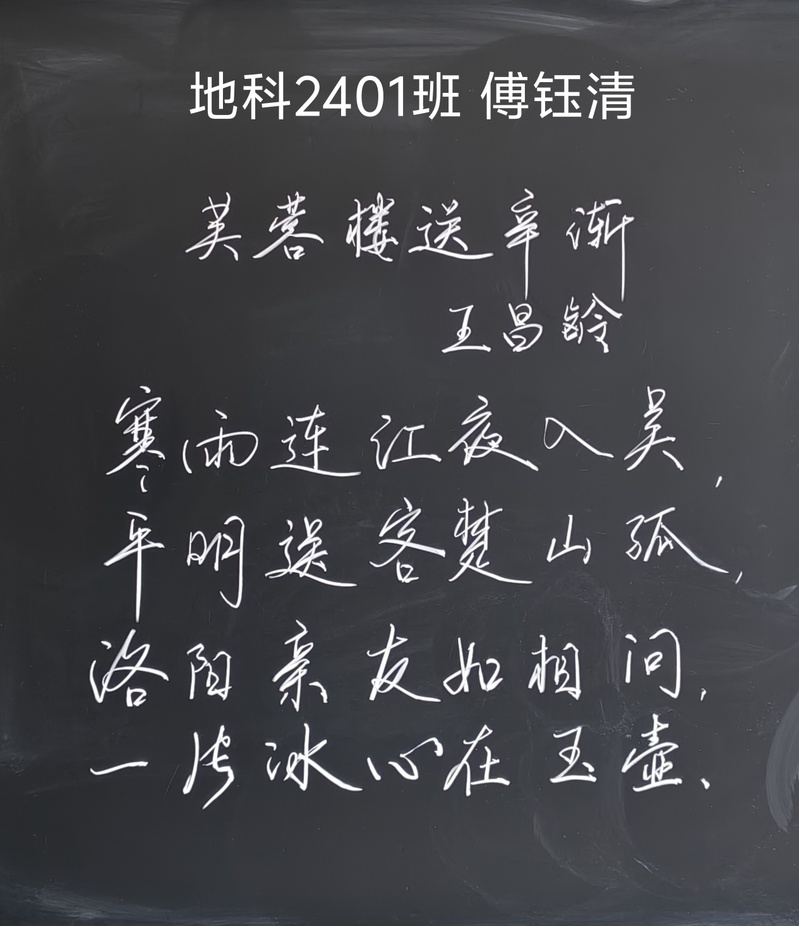 地科2401班 傅钰清
芙蓉楼送辛渐
王昌龄
寒雨连江夜入吴，
平明送客楚山孤，
洛阳亲友如相问，
一片冰心在玉壶、